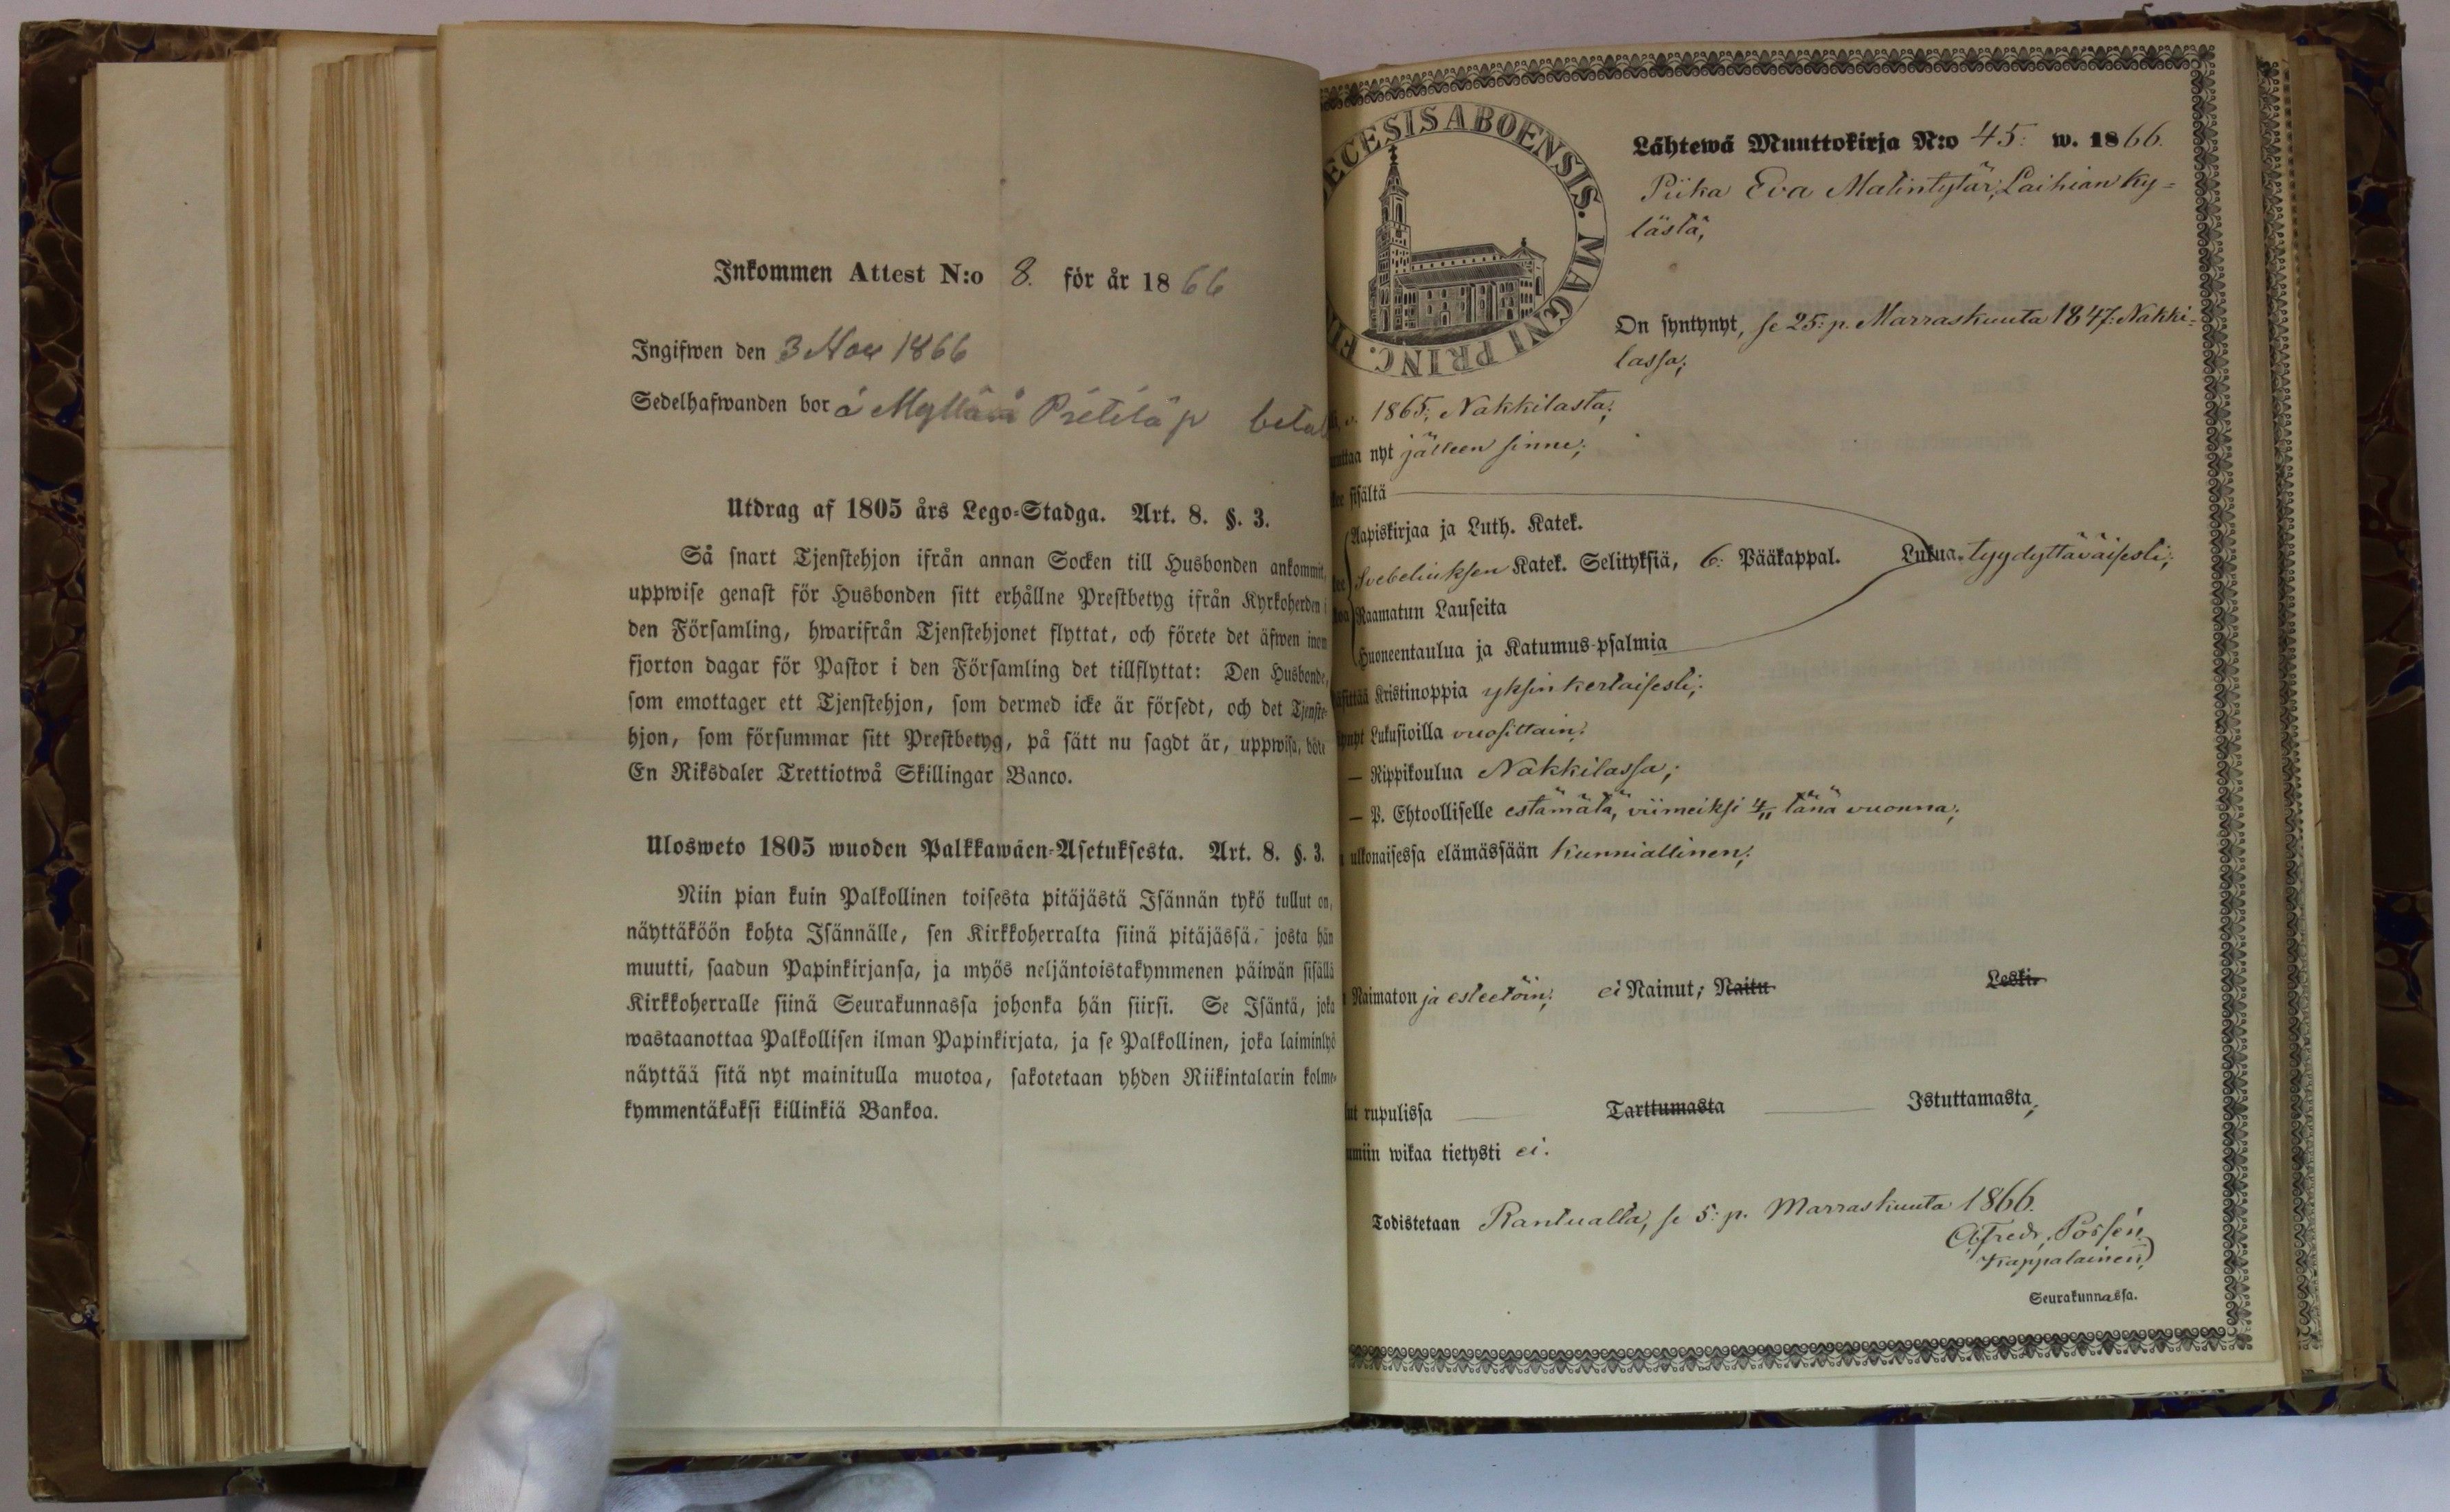 Inkommen Attest N:o 8. för år 1866
Ingifwen den 3 Nov 1866
Sedelhafwanden bor å
Utdrag af 1805 års Lego-Stadga. Art. 8. §. 3.
Så snart Tjenstehjon ifrån annan Socken till Husbonden ankommit,
uppwise genast för Husbonden sitt erhållne Prestbetyg ifrån Kyrkoherden i
den Församling, hwarifrån Tjenstehjonet flyttat, och förete det äfwen inom
fjorton dagar för Pastor i den Församling det tillflyttat: Den Husbonde,
som emottager ett Tjenstehjon, som dermed icke är försedt, och det Tjenste-
hjon, som försummar sitt Prestbetyg, på sätt nu sagdt är, uppwisa, böte
En Riksdaler Trettiotwå Skillingar Banco.
Ulosweto 1805 wuoden Palkkawäen-Asetuksesta. Art. 8. §. 3.
Niin pian kuin Palkollinen toisesta pitäjästä Isännän tykö tullut on,
näyttäköön kohta Isännälle, sen Kirkkoherralta siinä pitäjässä, josta hän
muutti, saadun Papinkirjansa, ja myös neljäntoistakymmenen päiwän sisällä
Kirkkoherralle siinä Seurakunnassa johonka hän siirsi. Se Isäntä, joka
wastaanottaa Palkollisen ilman Papinkirjata, ja se Palkollinen, joka laiminlyö
näyttää sitä nyt mainitulla muotoa, sakotetaan yhden Riikintalarin kolme-
kymmentäkaksi killinkiä Bankoa.
ECESIS ABOENSIS. MAGNI PRINC. FI
Lähtewä Muuttokirja N:o 45: w. 1866.
Piika Eva Matintytär, Laihian ky-
lästä;
On syntynyt, se 25: p. Marraskuuta 1847: Nakki-
lassa;
1865, Nakkilasta;
nyt jälleen sinne;
sisältä
Aapiskirjaa ja Luth. Katek.
Svebeliuksen Katek. Selityksiä, 6: Pääkappal. Lukua tyydyttäväisesti;
Raamatun Lauseita
Huoneentaulua ja Katumus-psalmia
Kristinoppia yksinkertaisesti;
Lukusioilla vuosittain;
— Rippikoulua Nakkilassa;
— P. Ehtoolliselle estämätä, viimeiksi 4/11 tänä vuonna;
ulkonaisessa elämässään kunniallinen;
Naimaton ja esteetöin; ei Nainut; Naitu Leski
rupulissa Tarttumasta Istuttamasta;
wikaa tietysti ei.
Todistetaan Rantualla, se 5: p. Marraskuuta 1866.
Afredr. Possén
Kappalainen
Seurakunnassa.